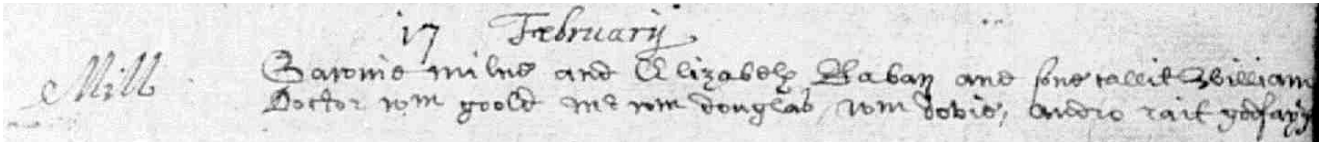 17 Februarij
Mill
Patrone milne and Elizabeth Raban ane sone callit William
Doctor wm goold Mr wm douglas, wm dovie, andro rait godfayrs